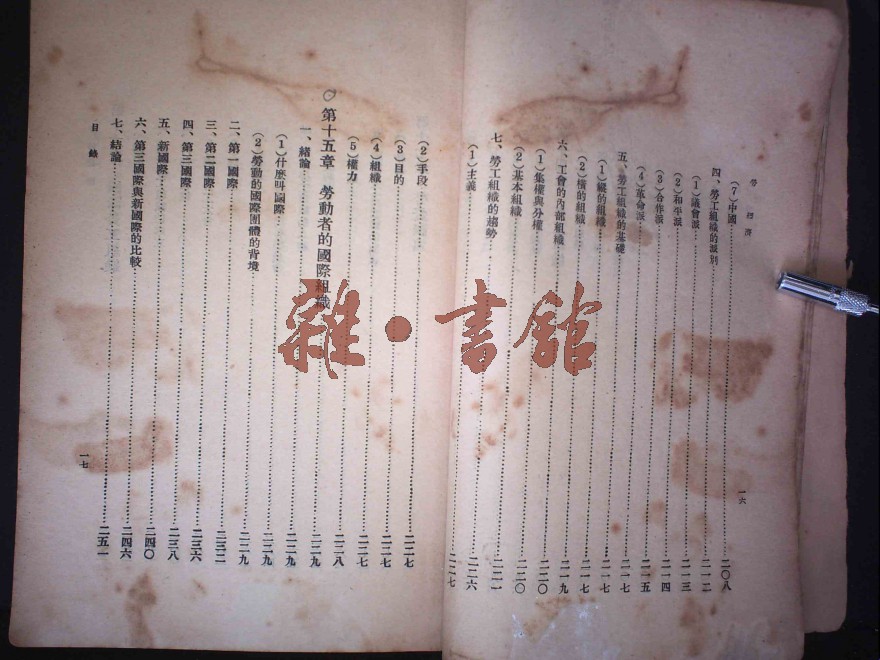 勞 經 濟
(7)中國……二〇八
四、勞工組織的派別……二一二
(1)議會派……二一三
(2)和平派……二一四
(3)合作派……二一五
(4)革命派……二一七
五、勞工組織的基礎……二一七
(1)縱的組織……二一七
(2)橫的組織……二一九
六、工會的內部組織……二二〇
(1)集權與分權……二二〇
(2)基本組織……二二一
七、勞工組織的趨勢……二二六
(1)主義……二二七
一六
(2)手段……二二七
(3)目的……二二七
(4)組織……二二七
(5)權力……二二八
第十五章 勞動者的國際組織……二二九
一、緒論……二二九
(1)什麼叫國際……二二九
(2)勞動的國際團體的背境……二二九
二、第一國際……二三二
三、第二國際……二三六
四、第三國際……二三八
五、新國際……二四〇
六、第三國際與新國際的比較……二四六
七、結論……二五一
目 錄
一七
雜·書館